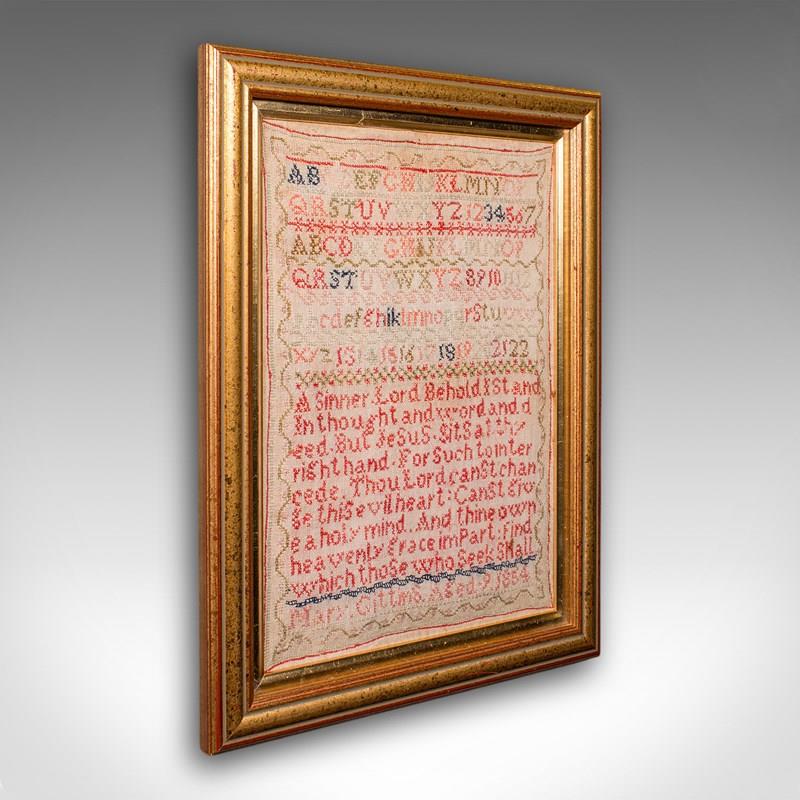 AB EF GHIJKLMNOP
QRSTUVWXYZ1234567
ABCD GH KLMNOP
QRSTUVWXYZ891011012
cdefghiklmnopqrstuvw
xyz1314151617181920 2122
A Sinner. Lord Behold I Stand
In thought and word and d
eed. But JeSuS. SitS at thy
right hand. For Such to inter
cede. Thou Lord canSt chan
ge thiS evil heart: CanSt giv
e a holy mind. And thine own
heavenly Grace imPart: find
which those who Seek Shall
Mary Gittins Aged. 9. 1884